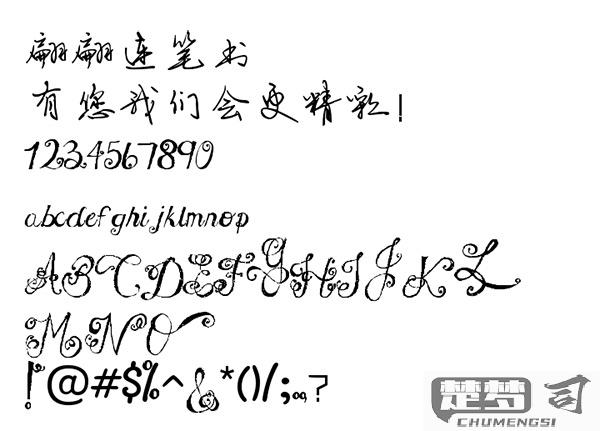 翩翩连笔书
有您我们会更精彩!
1234567890
abcdefghijklmnop
ABCDEFGHIJKL
MNO
!@#$%^&*()/;。,?
楚梦司
CHUMENGSI